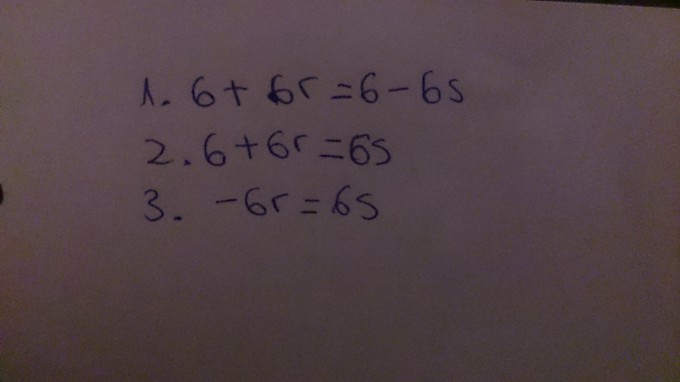 1. 6+ 6r = 6 - 6s
2. 6+6r = 6s
3. -6r = 6s